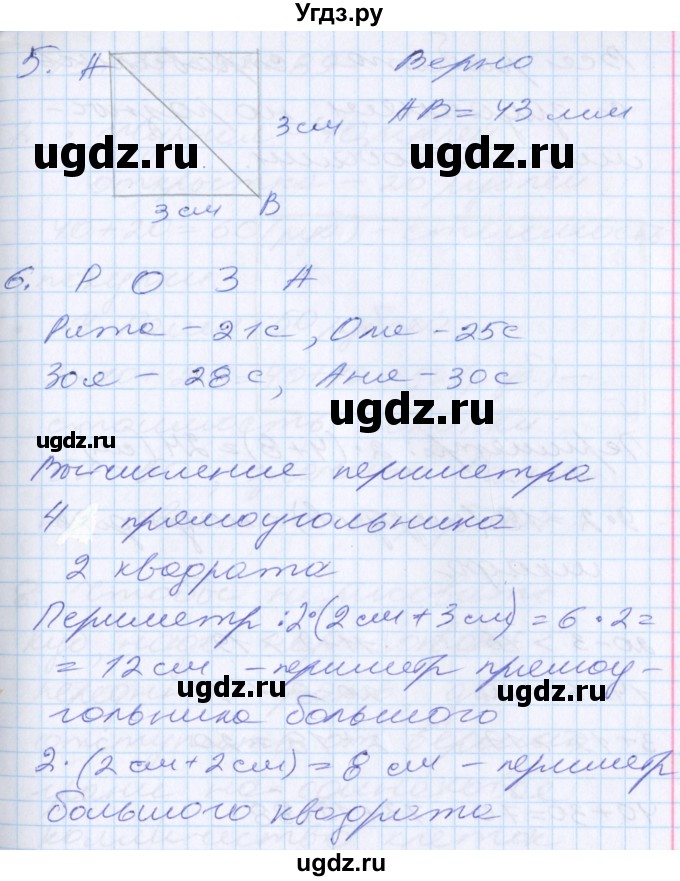 Угдз.ру
5. А
Верно
АВ = 43 мм
3 см
ugdz.ru ugdz.ru
3 см В
6. Р О З А
Рита – 21с, Оля – 25с
Зоя – 28 с, Аня – 30с
ugdz.ru
ugdz.ru
Вычисление периметра
4 прямоугольника
ugdz.ru
2 квадрата
Периметр: 2·(2 см + 3 см) = 6 · 2 =
= 12 см – периметр прямоу-
ugdz.ru ugdz.ru
гольника большого
2 · (2 см + 2 см) = 8 см – периметр
большого квадрата
ugdz.ru ugdz.ru
ugdz.ru